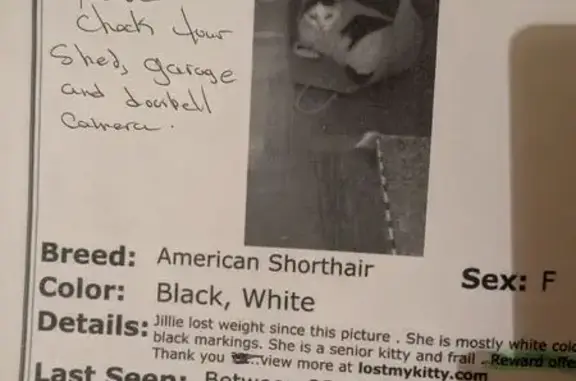 Check your
Shed, garage
and doorbell
Camera.
Breed: American Shorthair
Sex: F
Color: Black, White
Details: Jillie lost weight since this picture . She is mostly white
black markings. She is a senior kitty and frail . Reward
Thank you ...view more at lostmykitty.com
Last Seen: